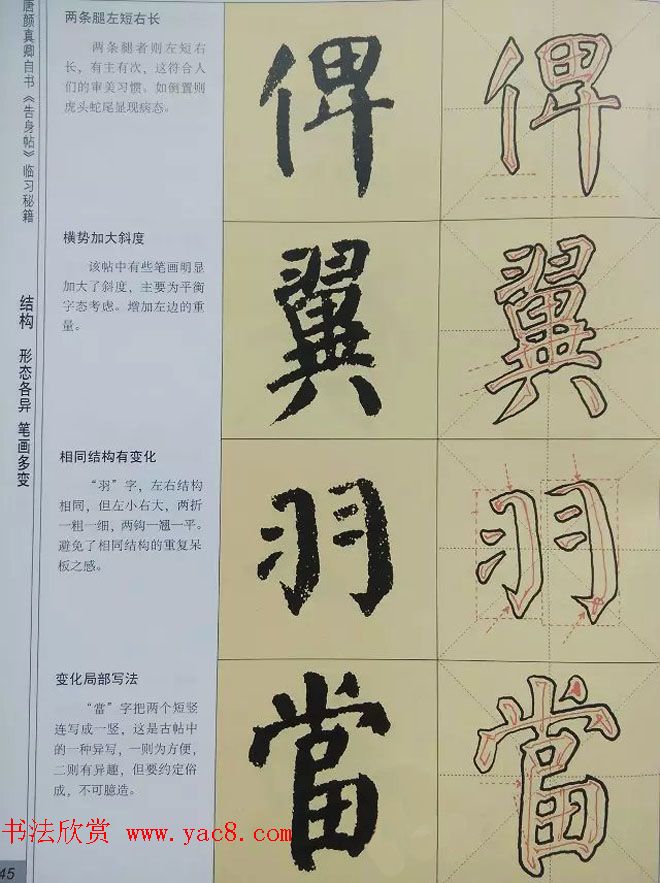 唐颜真卿自书《告身帖》临习秘籍
结构 形态各异 笔画多变
两条腿左短右长
两条腿者则左短右
长，有主有次，这符合人
们的审美习惯。如倒置则
虎头蛇尾显现病态。
俾
横势加大斜度
该帖中有些笔画明显
加大了斜度，主要为平衡
字态考虑。增加左边的重
量。
翼
相同结构有变化
“羽”字，左右结构
相同，但左小右大，两折
一粗一细，两钩一翘一平。
避免了相同结构的重复呆
板之感。
羽
变化局部写法
“當”字把两个短竖
连写成一竖，这是古帖中
的一种异写，一则为方便，
二则有异趣，但要约定俗
成，不可臆造。
當
书法欣赏 www.yac8.com
45